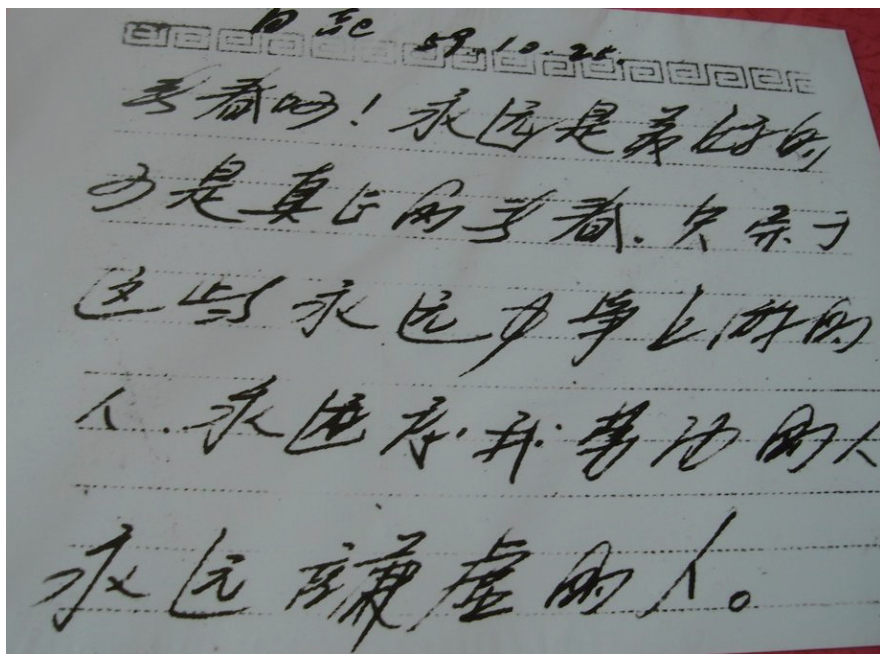 日记 59.10.25.
青春啊！永远是美好的
可是真正的青春.只属于
这些永远力争上游的
人.永远忘我劳动的人
永远謙虚的人。